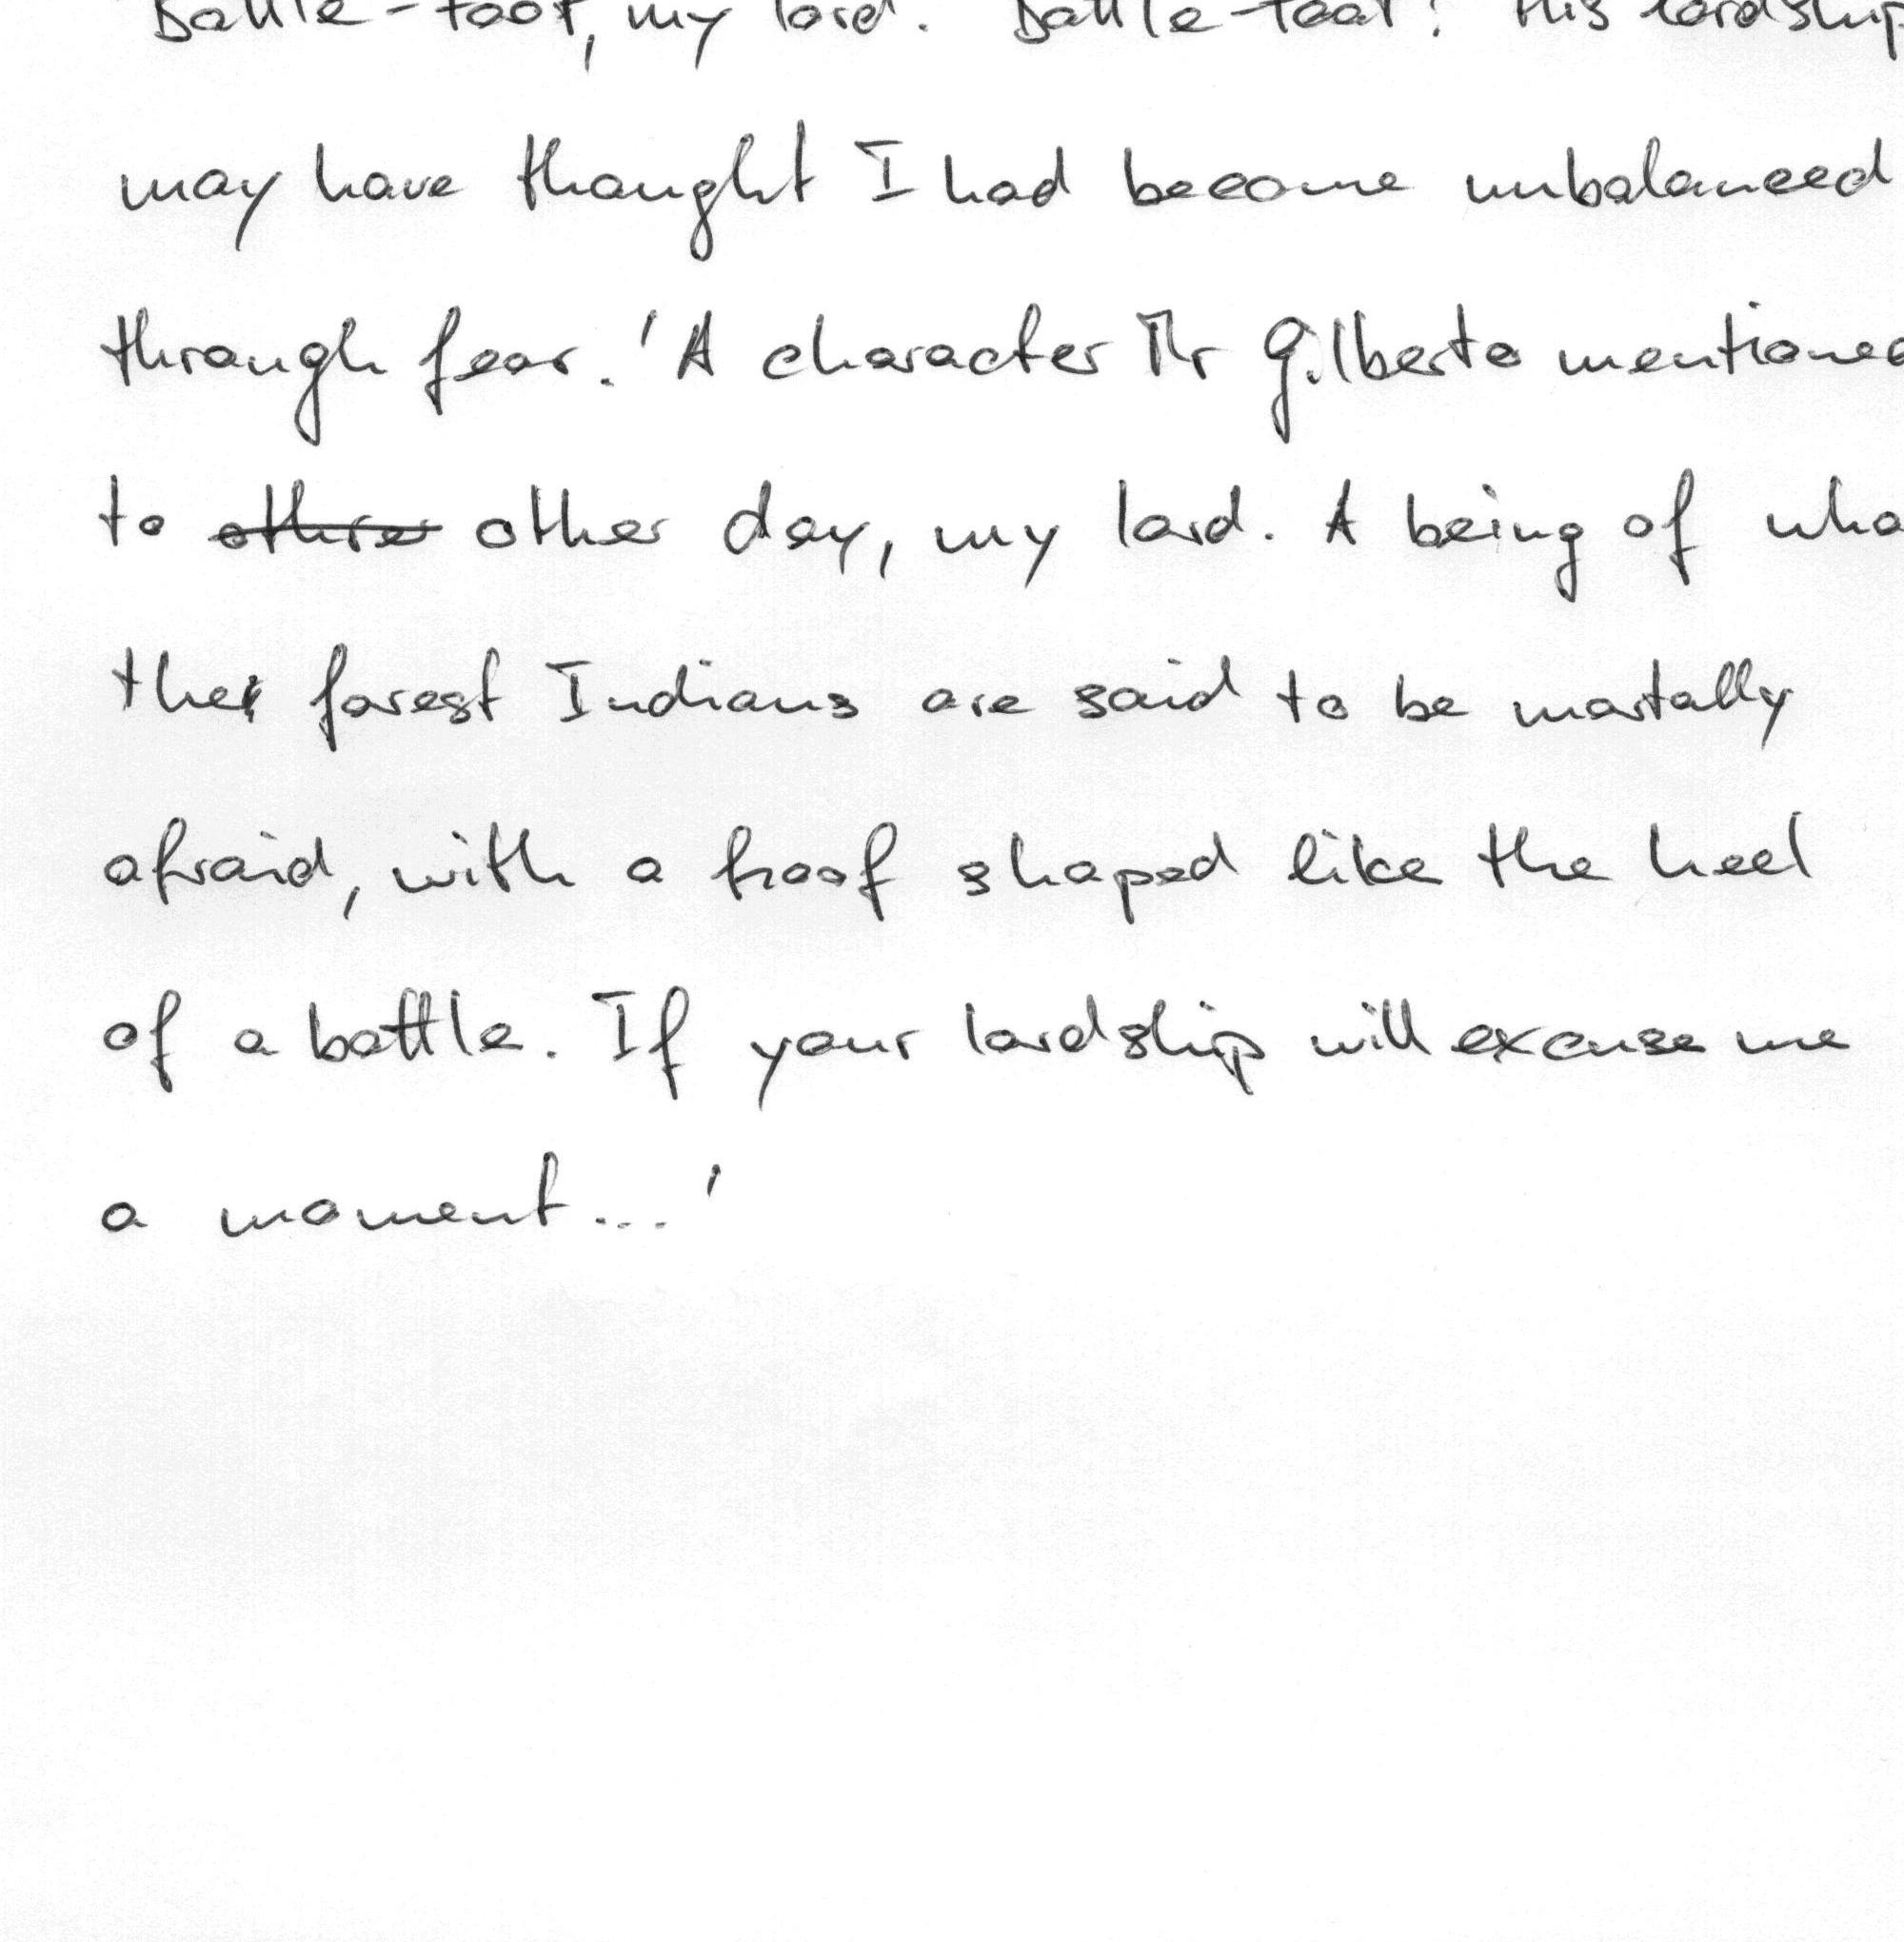 Bottle-foot, my lord. Bottle-foot! His lordship
may have thought I had become unbalanced
through fear. 'A character Mr Gilberto mentioned
to other day, my lord. A being of who
the forest Indians are said to be mortally
afraid, with a hoof shaped like the heel
of a bottle. If your lordship will excuse me
a moment...'